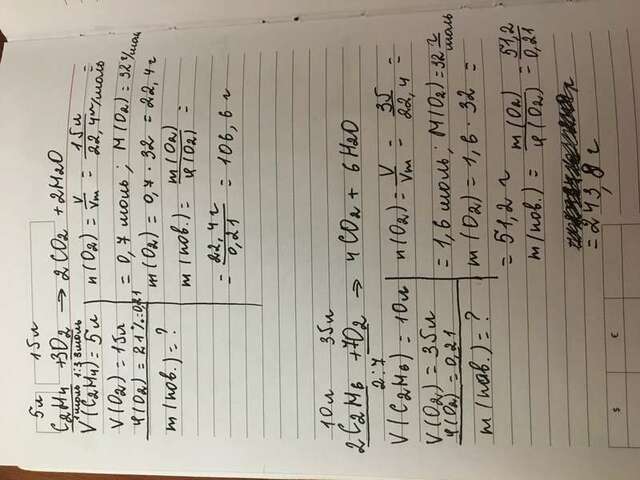 5л 15л
C₂H₄ + 3O₂ → 2CO₂ + 2H₂O
1моль 1:3 3моль
V(C₂H₄) = 5л
V(O₂) = 15л
φ(O₂) = 21% = 0,21
m(пов.) = ?
n(O₂) = V/Vm = 15л/22,4л/моль =
= 0,7 моль; M(O₂) = 32г/моль
m(O₂) = 0,7 · 32 = 22,4г
m(пов.) = m(O₂)/φ(O₂) =
= 22,4г/0,21 = 106,6 г
10л 35л
2C₂H₆ + 7O₂ → 4CO₂ + 6H₂O
2:7
V(C₂H₆) = 10л
V(O₂) = 35л
φ(O₂) = 0,21
m(пов.) = ?
n(O₂) = V/Vm = 35/22,4 =
= 1,6 моль; M(O₂) = 32 г/моль
m(O₂) = 1,6 · 32 =
= 51,2 г
m(пов.) = m(O₂)/φ(O₂) = 51,2/0,21
= 243,8 г
$ €